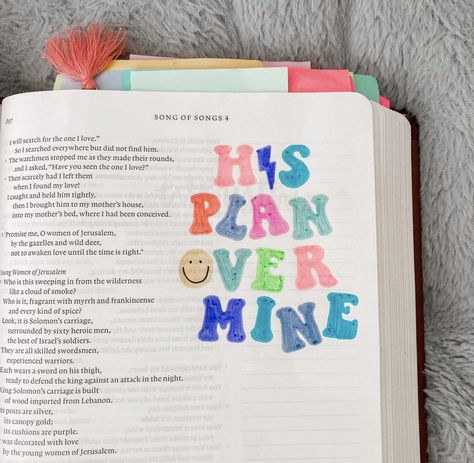 SONG OF SONGS 4
I will search for the one I love."
So I searched everywhere but did not find him.
3 The watchmen stopped me as they made their rounds,
and I asked, "Have you seen the one I love?"
4 Then scarcely had I left them
when I found my love!
I caught and held him tightly,
then I brought him to my mother's house,
into my mother's bed, where I had been conceived.
5 Promise me, O women of Jerusalem,
by the gazelles and wild deer,
not to awaken love until the time is right.
Young Women of Jerusalem
6 Who is this sweeping in from the wilderness
like a cloud of smoke?
Who is it, fragrant with myrrh and frankincense
and every kind of spice?
7 Look, it is Solomon's carriage,
surrounded by sixty heroic men,
the best of Israel's soldiers.
They are all skilled swordsmen,
experienced warriors.
Each wears a sword on his thigh,
ready to defend the king against an attack in the night.
King Solomon's carriage is built
of wood imported from Lebanon.
Its posts are silver,
its canopy gold;
its cushions are purple.
was decorated with love
by the young women of Jerusalem.
HIS
PLAN
OVER
MINE